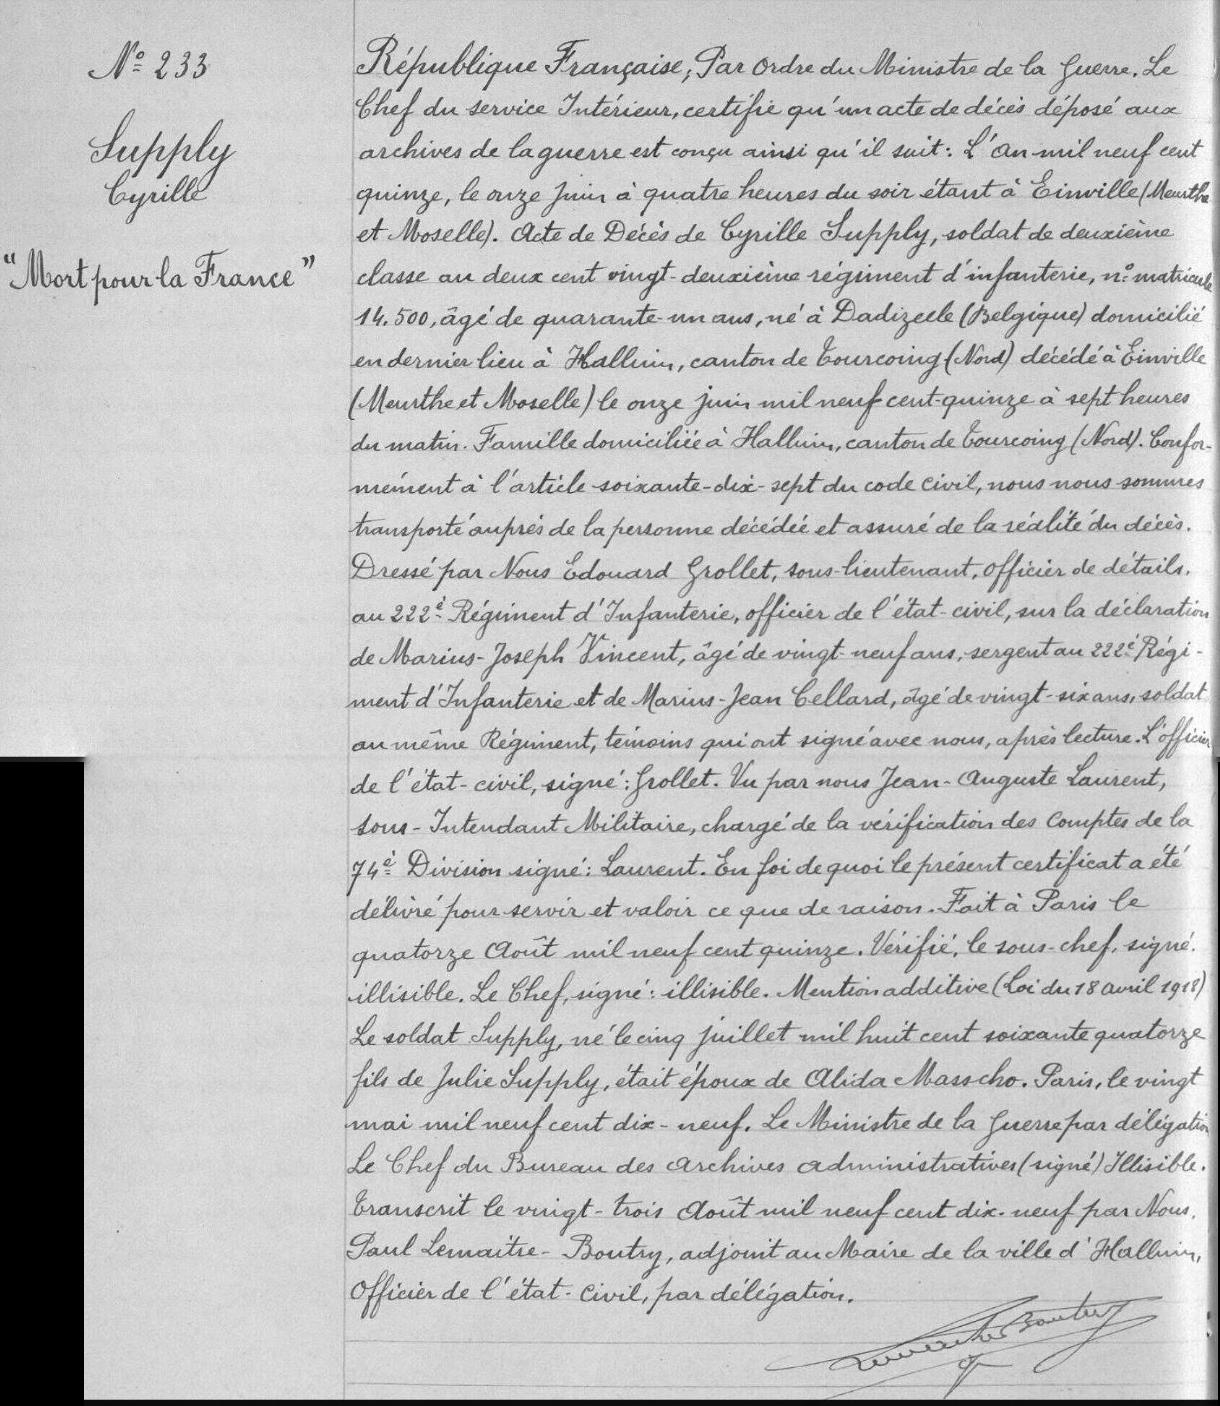 Nº 233
Supply
Cyrille
"Mort pour la France"
République Française, Par Ordre du Ministre de la Guerre. Le
Chef du service Intérieur, certifie qu'un acte de décès déposé aux
archives de la guerre est conçu ainsi qu'il suit: L'An mil neuf cent
quinze, le onze Juin à quatre heures du soir étant à Einville (Meurthe
et Moselle). Acte de Décès de Cyrille Supply, soldat de deuxième
classe au deux cent vingt-deuxième régiment d'infanterie, nº matricule
14.500, âgé de quarante-un ans, né à Dadizeele (Belgique) domicilié
en dernier lieu à Halluin, canton de Tourcoing (Nord) décédé à Einville
(Meurthe et Moselle) le onze juin mil neuf cent-quinze à sept heures
du matin. Famille domiciliée à Halluin, canton de Tourcoing (Nord). Confor-
mément à l'article soixante-dix-sept du code civil, nous nous sommes
transporté auprès de la personne décédée et assuré de la réalité du décès.
Dressé par Nous Edouard Grollet, sous-lieutenant, officier de détails.
au 222è Régiment d'Infanterie, officier de l'état-civil, sur la déclaration
de Marius-Joseph Vincent, âgé de vingt-neuf ans, sergent au 222è Régi-
ment d'Infanterie et de Marius-Jean Cellard, âgé de vingt-six ans, soldat
au même Régiment, témoins qui ont signé avec nous, après lecture. L'officier
de l'état-civil, signé: Grollet. Vu par nous Jean-Auguste Laurent,
sous-Intendant Militaire, chargé de la vérification des Comptes de la
74è Division signé: Laurent. En foi de quoi le présent certificat a été
délivré pour servir et valoir ce que de raison. Fait à Paris le
quatorze Août mil neuf cent quinze. Vérifié, le sous-chef, signé.
illisible. Le Chef, signé: illisible. Mention additive (Loi du 18 avril 1918)
Le soldat Supply, né le cinq juillet mil huit cent soixante quatorze
fils de Julie Supply, était époux de Alida Masscho. Paris, le vingt
mai mil neuf cent dix-neuf. Le Ministre de la Guerre par délégation
Le Chef du Bureau des Archives Administratives (signé) Illisible.
Transcrit le vingt-trois Août mil neuf cent dix-neuf par Nous,
Paul Lemaitre-Boutry, adjoint au Maire de la ville d'Halluin,
Officier de l'état-civil, par délégation.
Lemaitre Boutry